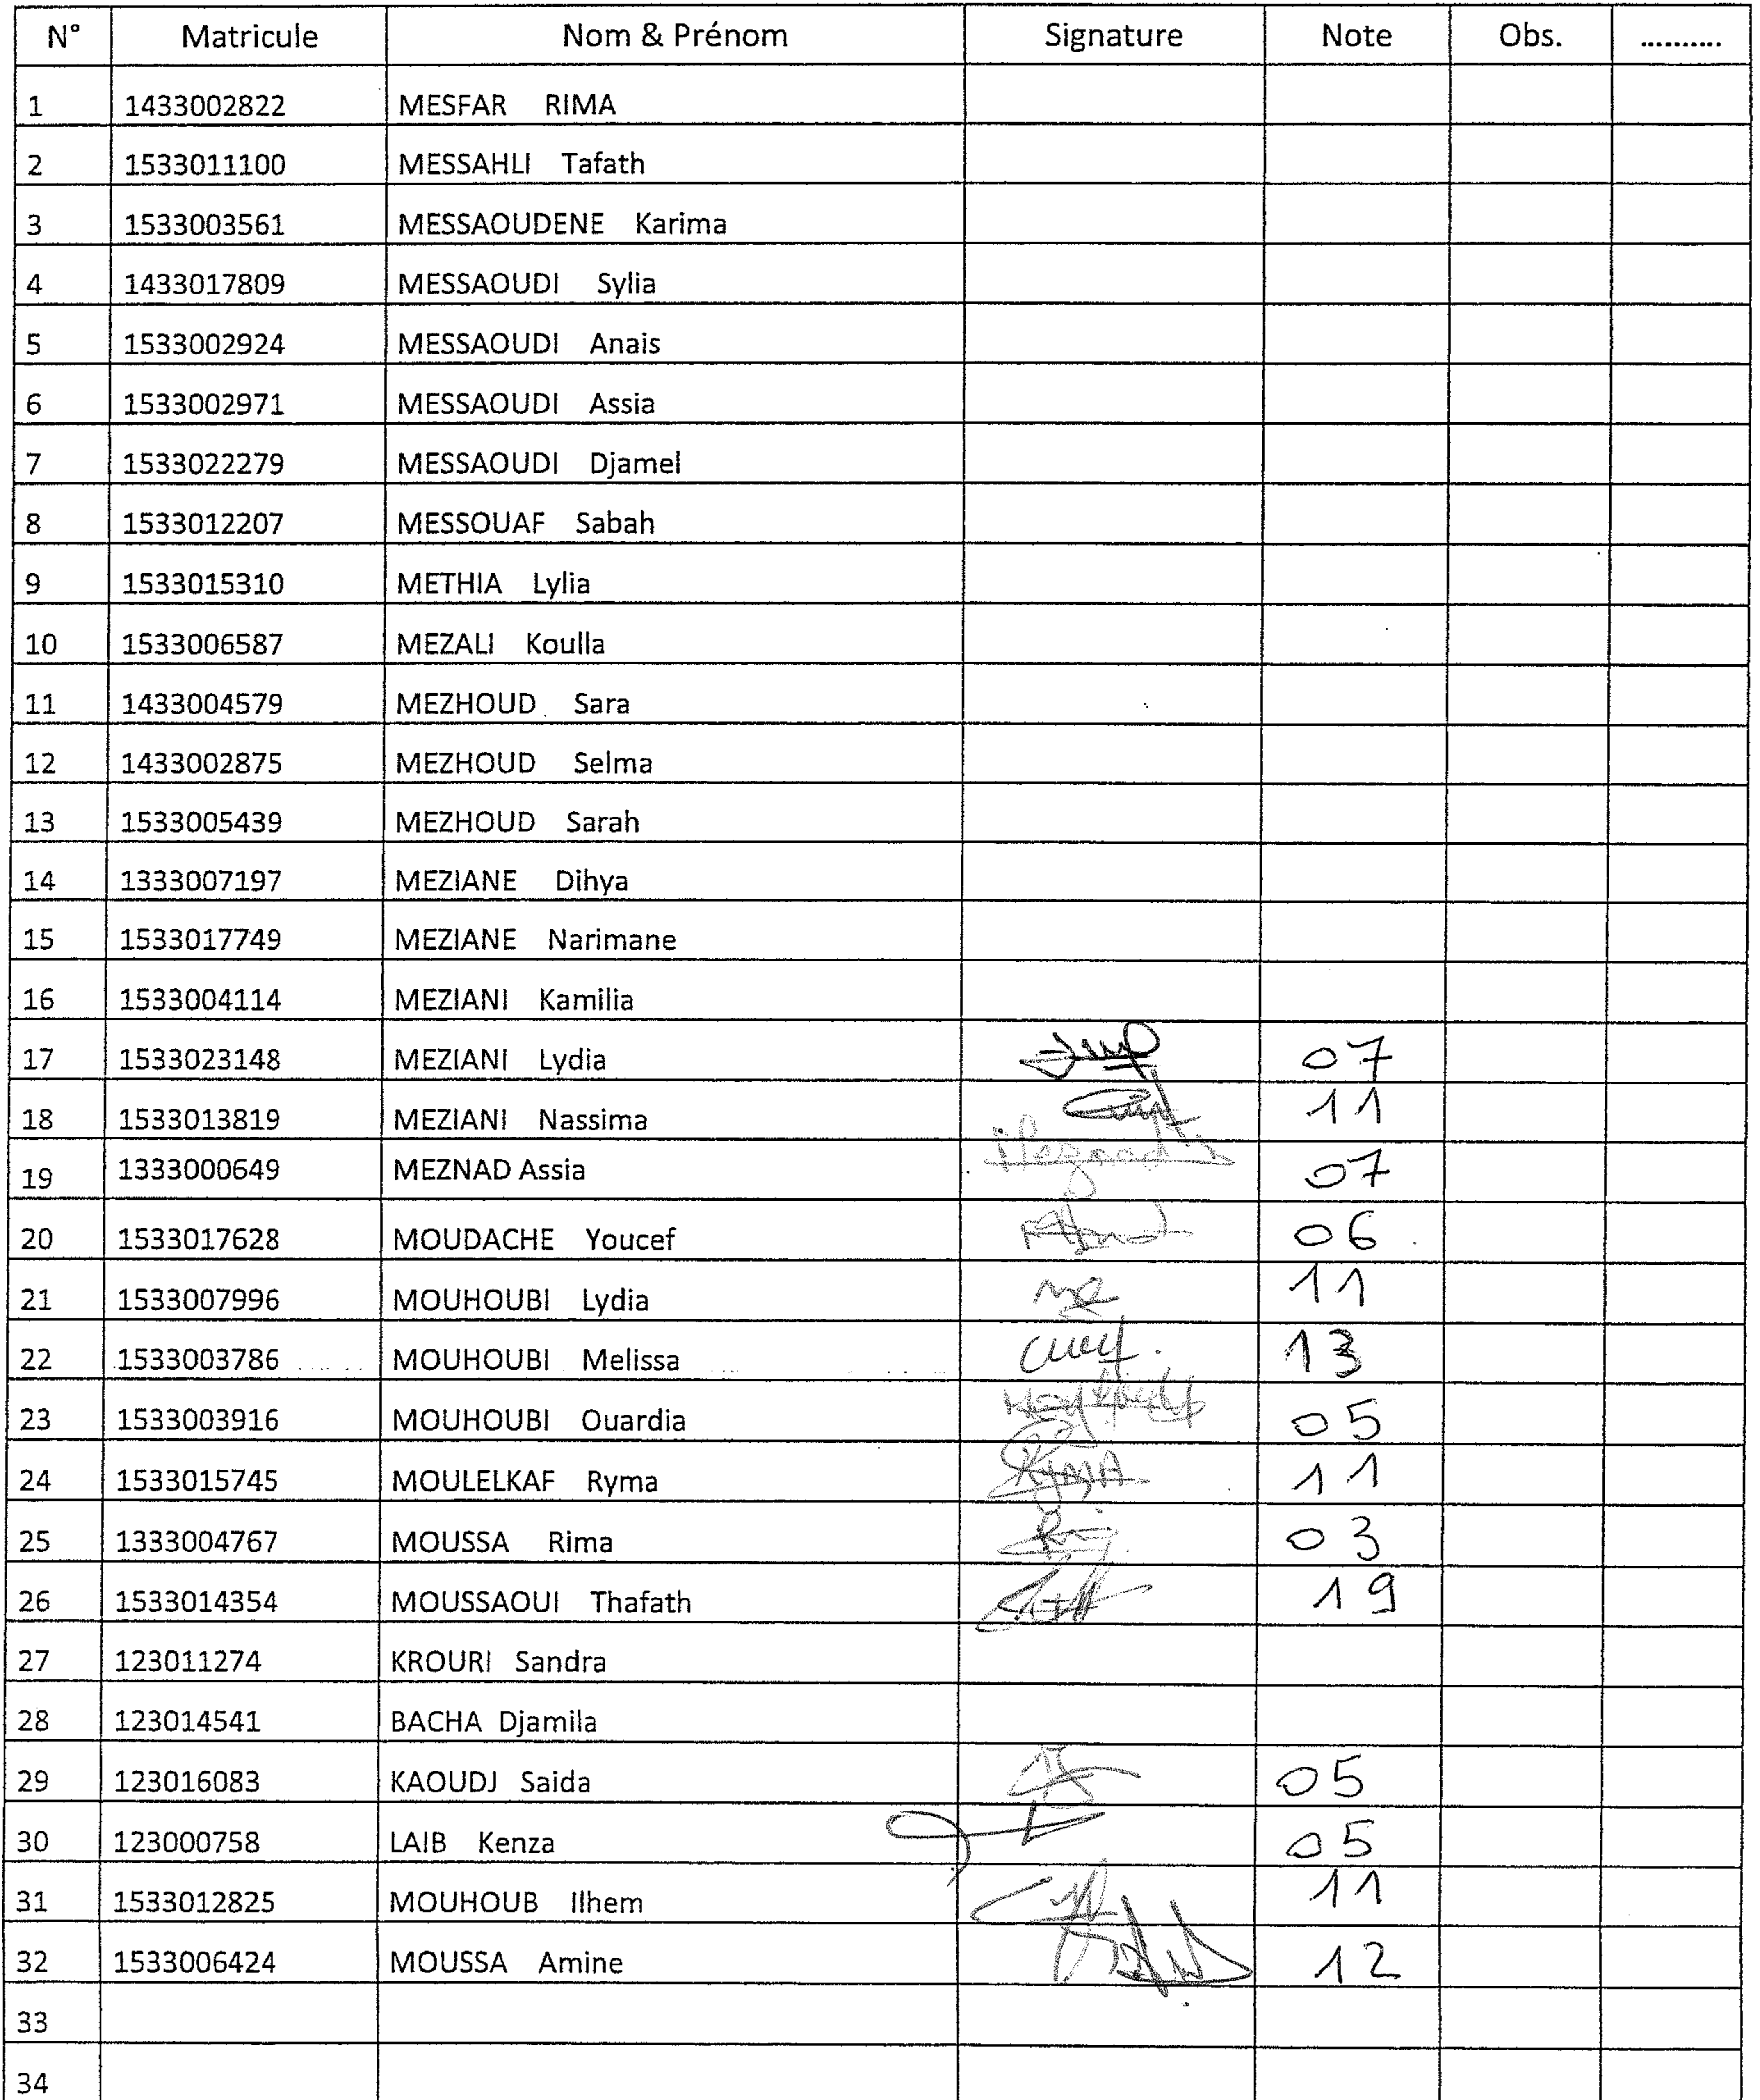 N° Matricule Nom & Prénom Signature Note Obs. ..........
1 1433002822 MESFAR RIMA
2 1533011100 MESSAHLI Tafath
3 1533003561 MESSAOUDENE Karima
4 1433017809 MESSAOUDI Sylia
5 1533002924 MESSAOUDI Anais
6 1533002971 MESSAOUDI Assia
7 1533022279 MESSAOUDI Djamel
8 1533012207 MESSOUAF Sabah
9 1533015310 METHIA Lylia
10 1533006587 MEZALI Koulla
11 1433004579 MEZHOUD Sara
12 1433002875 MEZHOUD Selma
13 1533005439 MEZHOUD Sarah
14 1333007197 MEZIANE Dihya
15 1533017749 MEZIANE Narimane
16 1533004114 MEZIANI Kamilia
17 1533023148 MEZIANI Lydia 07
18 1533013819 MEZIANI Nassima 11
19 1333000649 MEZNAD Assia 07
20 1533017628 MOUDACHE Youcef 06
21 1533007996 MOUHOUBI Lydia 11
22 1533003786 MOUHOUBI Melissa 13
23 1533003916 MOUHOUBI Ouardia 05
24 1533015745 MOULELKAF Ryma RYMA 11
25 1333004767 MOUSSA Rima 03
26 1533014354 MOUSSAOUI Thafath 19
27 123011274 KROURI Sandra
28 123014541 BACHA Djamila
29 123016083 KAOUDJ Saida 05
30 123000758 LAIB Kenza 05
31 1533012825 MOUHOUB Ilhem 11
32 1533006424 MOUSSA Amine 12
33
34